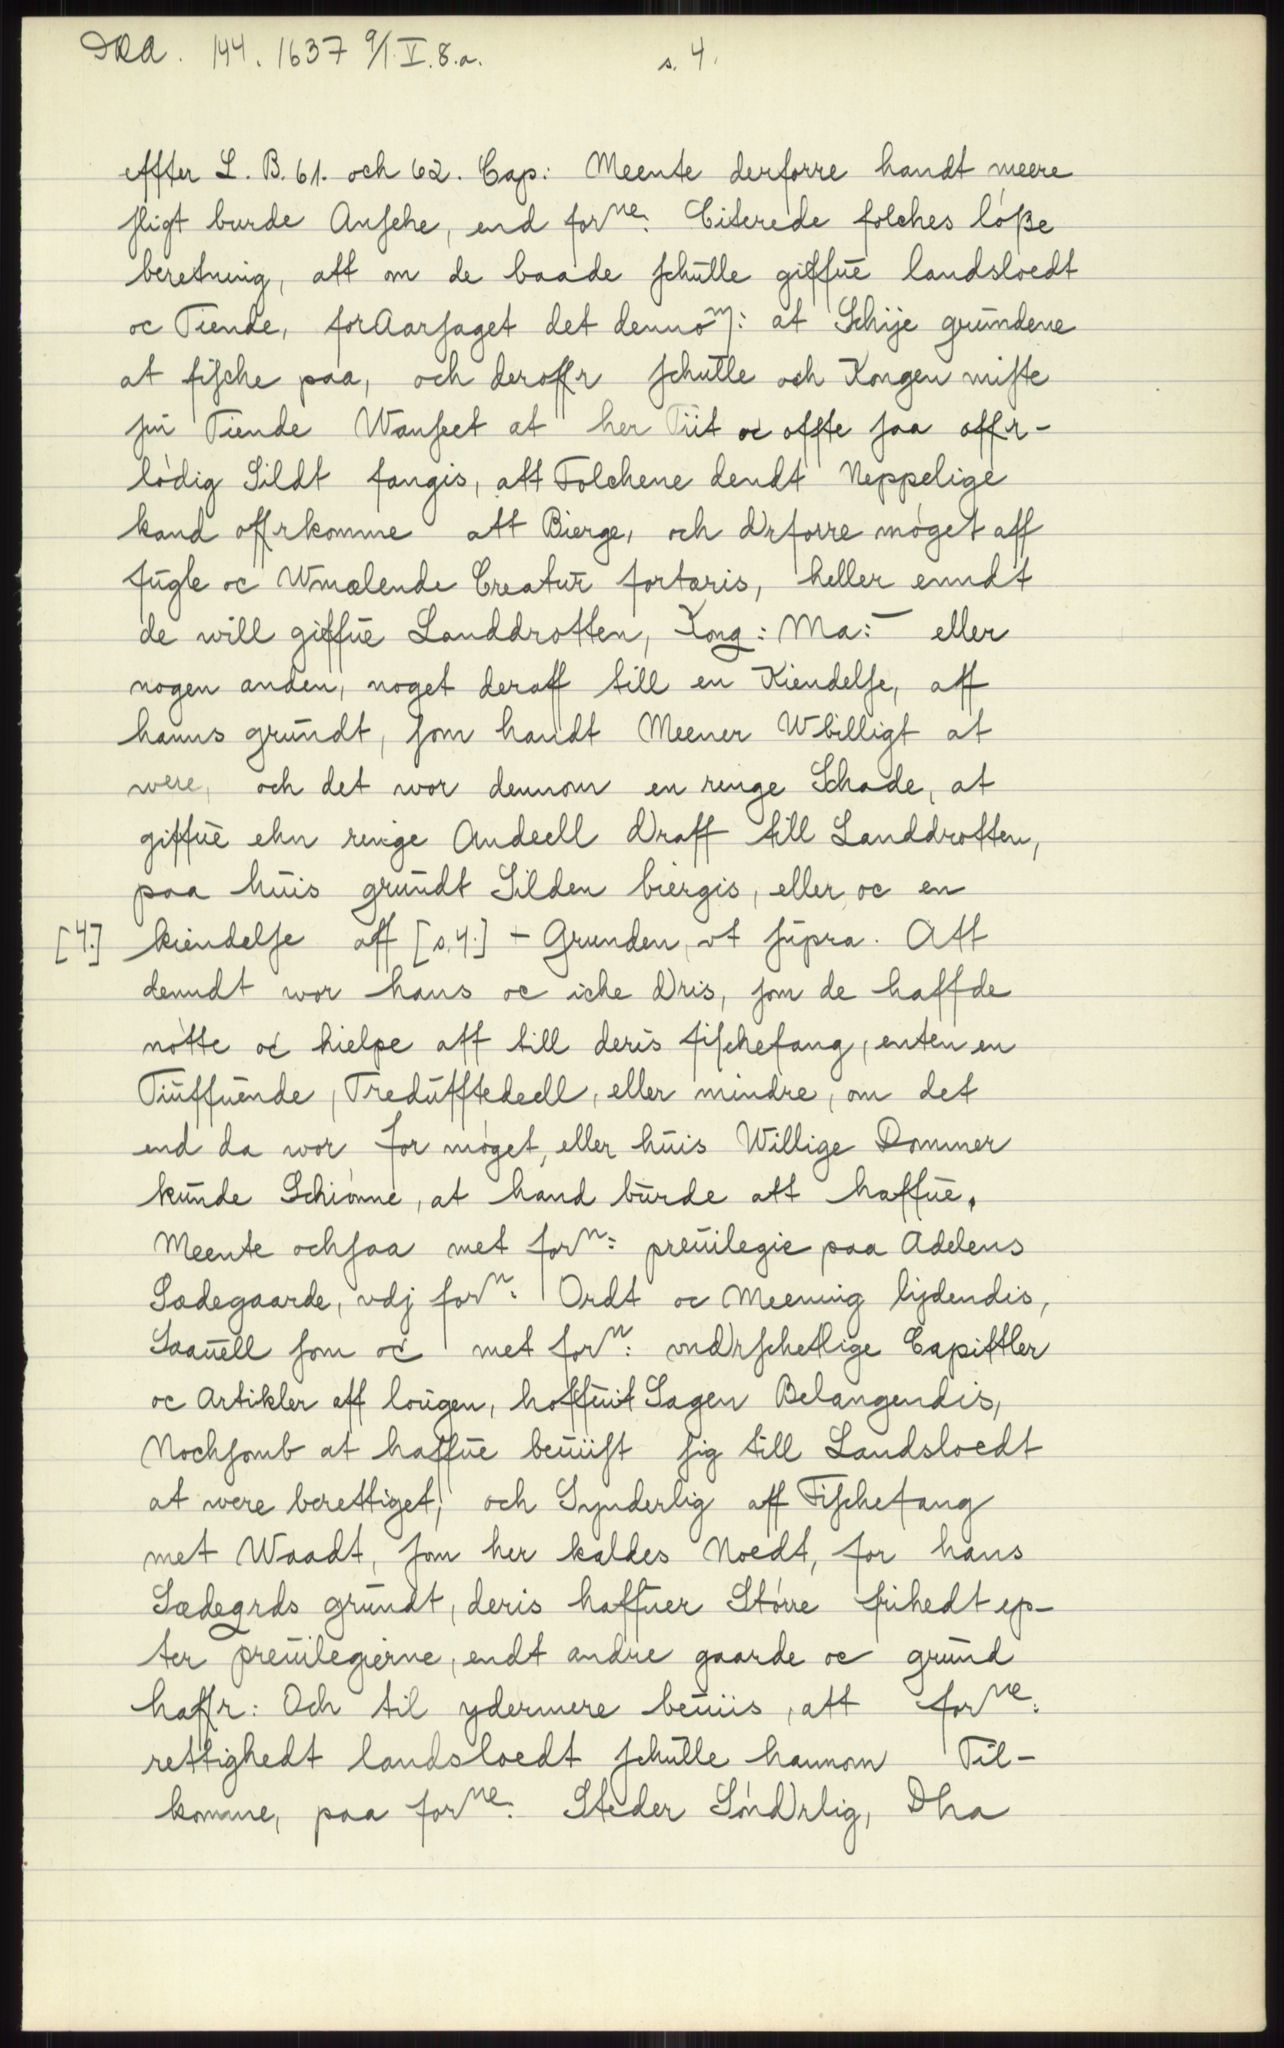 DRA. 144. 1637 9/1. V. 8. a. s. 4.
effter L. B. 61. och 62. Cap: Meente derforre handt meere
fligt burde Ansehe, end forne. Citerede folches löße
beretning, att om de baade schulle giffue landsloedt
oc Tiende, forAarsaget det dennom: at Schije grundene
at fische paa, och deroffr schulle och Kongen miste
sin Tiende Wanseet at her Tiit oc offte saa offr-
lödig Sildt fangis, att Folchene dendt Neppelige
kand offrkomme att Bierge, och drforre möget aff
fugle oc Wmælende Creatur fortæris, heller enndt
de will giffue Landdrotten, Kong: Ma: eller
nogen anden, noget deraff till en Kiendelse, aff
hanns grundt, som handt Meener Wbilligt at
were, och det wor dennom en ringe Schade, at
giffue ehn ringe Andeell draff till Landdrotten,
paa huis grundt Silden biergis, eller oc en
[4.] kiendelse aff [s. 4.] - Grunden, vt supra. Att
denndt wor hans oc iche dris, som de haffde
nötte oc hielpe aff till deris fischefang, enten en
Tiuffuende, Tredufftedeell, eller mindre, om det
end da wor for möget, eller huis Willige Dommer
kunde Schiönne, at hand burde att haffue.
Meente ochsaa met forn: preuilegie paa Adelens
Sædegaarde, vdj forn: Ordt oc Meening lijdendis,
Saauell som oc met forn: vndrschetlige Capittler
oc Artikler aff lougen, hoffuit Sagen Belangendis,
Nochsomb at haffue beuiist sig till Landsloedt
at were berettiget, och Synderlig aff Fischefang
met Waadt, som her kaldes Noedt, for hans
Sædegrds grundt, deris haffuer Större frihedt ep-
ter preuilegierne, endt andre gaarde oc grund
haffr: Och til ydermere beuiis, att forne:
rettighedt landsloedt schulle hannom Til-
komme, paa forne. Steder Söndrlig, Dha